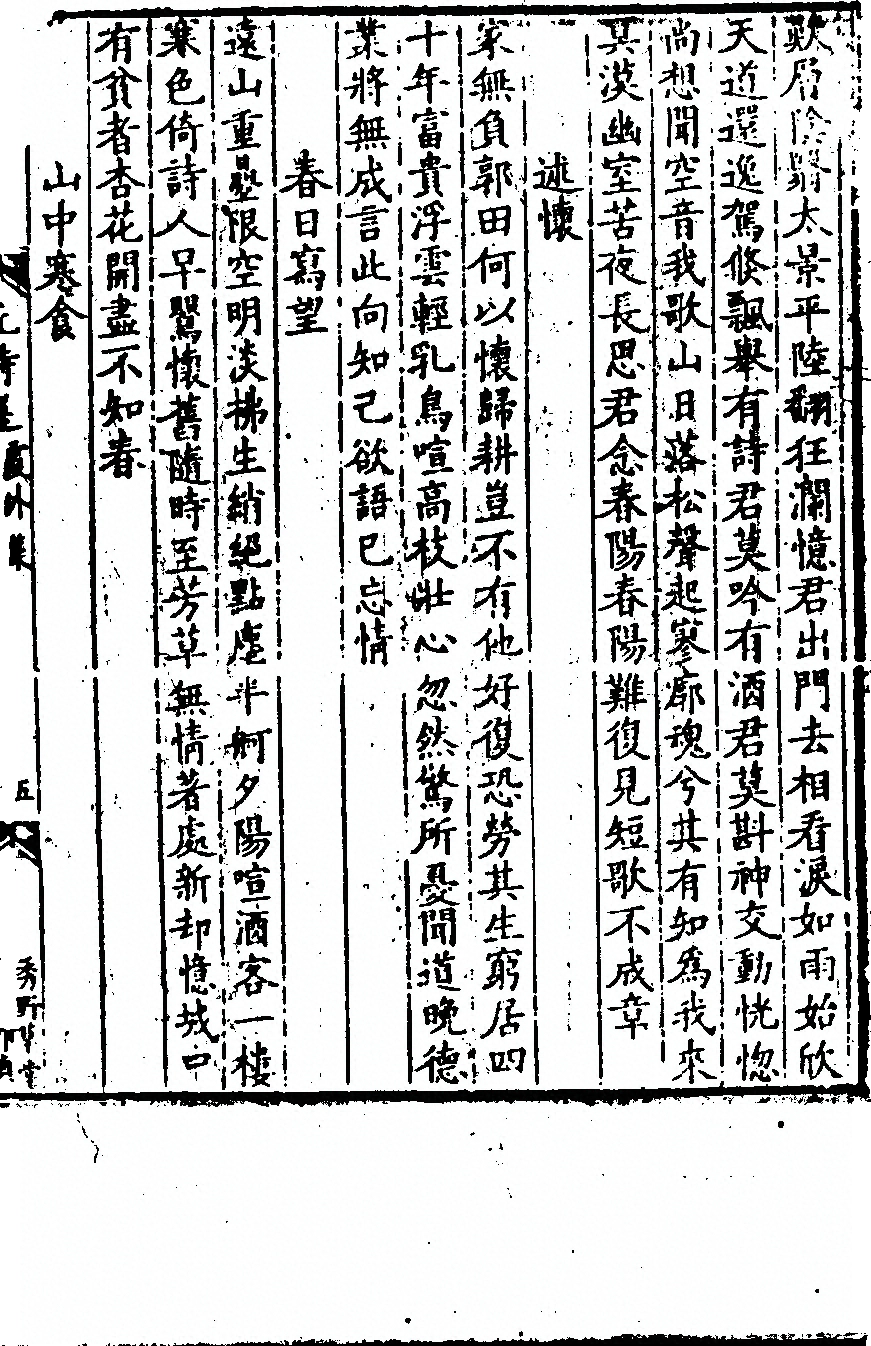 歎層陰翳太景平陸翻狂瀾憶君出門去相看淚如雨始欣
天道還逸駕倏飄舉有詩君莫吟有酒君莫斟神交動恍惚
尚想聞空音我歌山日落松聲起寥廓魂兮其有知為我來
冥漠幽室苦夜長思君念春陽春陽難復見短歌不成章
述懷
家無負郭田何以懷歸耕豈不有他好復恐勞其生窮居四
十年富貴浮雲輕乳鳥喧高枝壯心忽然驚所憂聞道晚德
業將無成言此向知己欲語已忘情
春日寫望
遠山重疊恨空明淡拂生綃絕點塵半舸夕陽喧酒客一樓
寒色倚詩人早鶯懷舊隨時至芳草無情著處新却憶城口
有貧者杏花開盡不知春
山中寒食
元詩選 夏外集
五
秀野草堂